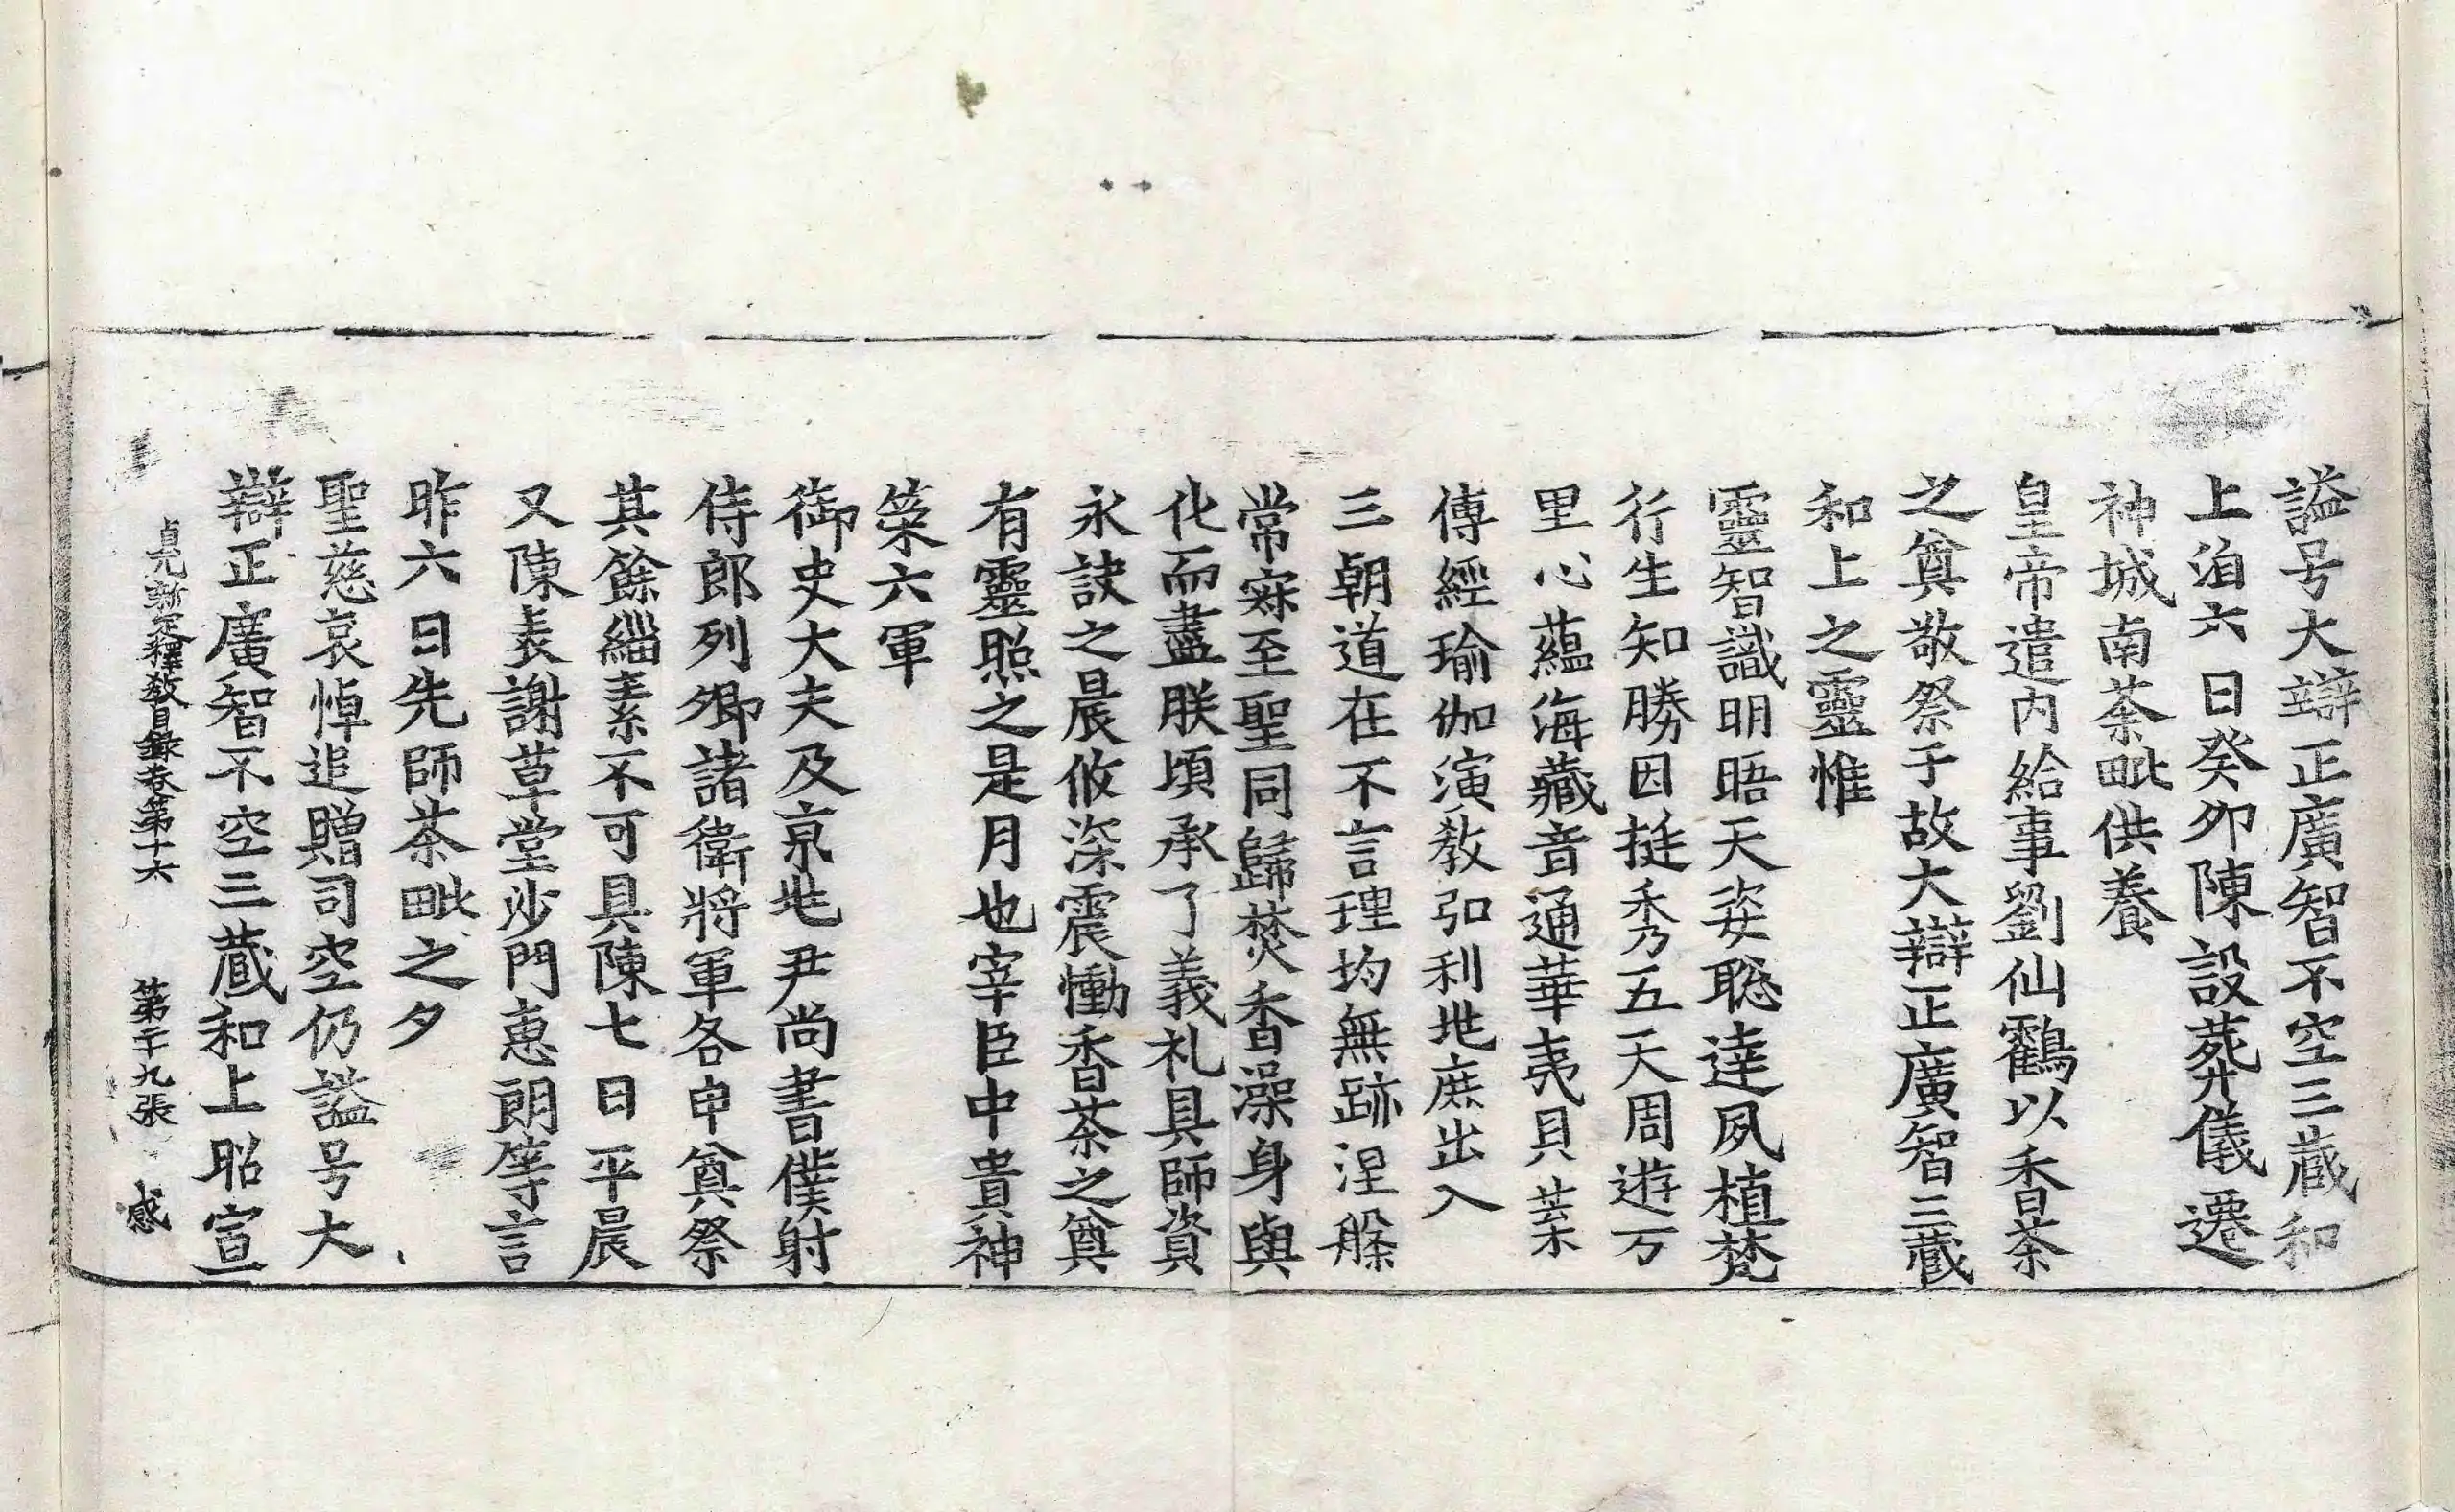 謚号大辯正廣智不空三蔵和
上洎六日癸夘陳設葬儀遷
神城南茶毗供養
皇帝遣内給事劉仙鶴以香茶
之奠敬祭于故大辯正廣智三蔵
和上之靈惟
靈智識明晤天姿聡達夙植梵
行生知勝因挺秀五天周遊万
里心蘊海藏音通華夷貝葉
傳經瑜伽演教弘利地庶出入
三朝道在不言理均無跡涅槃
常寂至聖同歸焚香澡身與
化而盡朕頃承了義礼具師資
永訣之晨攸深震慟香茶之奠
有靈照之是月也宰臣中貴神
筞六軍
御史大夫及京地尹尚書僕射
侍郎列卿諸衛將軍各申奠祭
其餘緇素不可具陳七日平晨
又陳表謝草堂沙門惠朗等言
昨六日先師茶毗之夕
聖慈哀悼追贈司空仍謚号大
辯正廣智不空三蔵和上昭宣
貞元新定釋教目録卷第十六 第二十九張 感